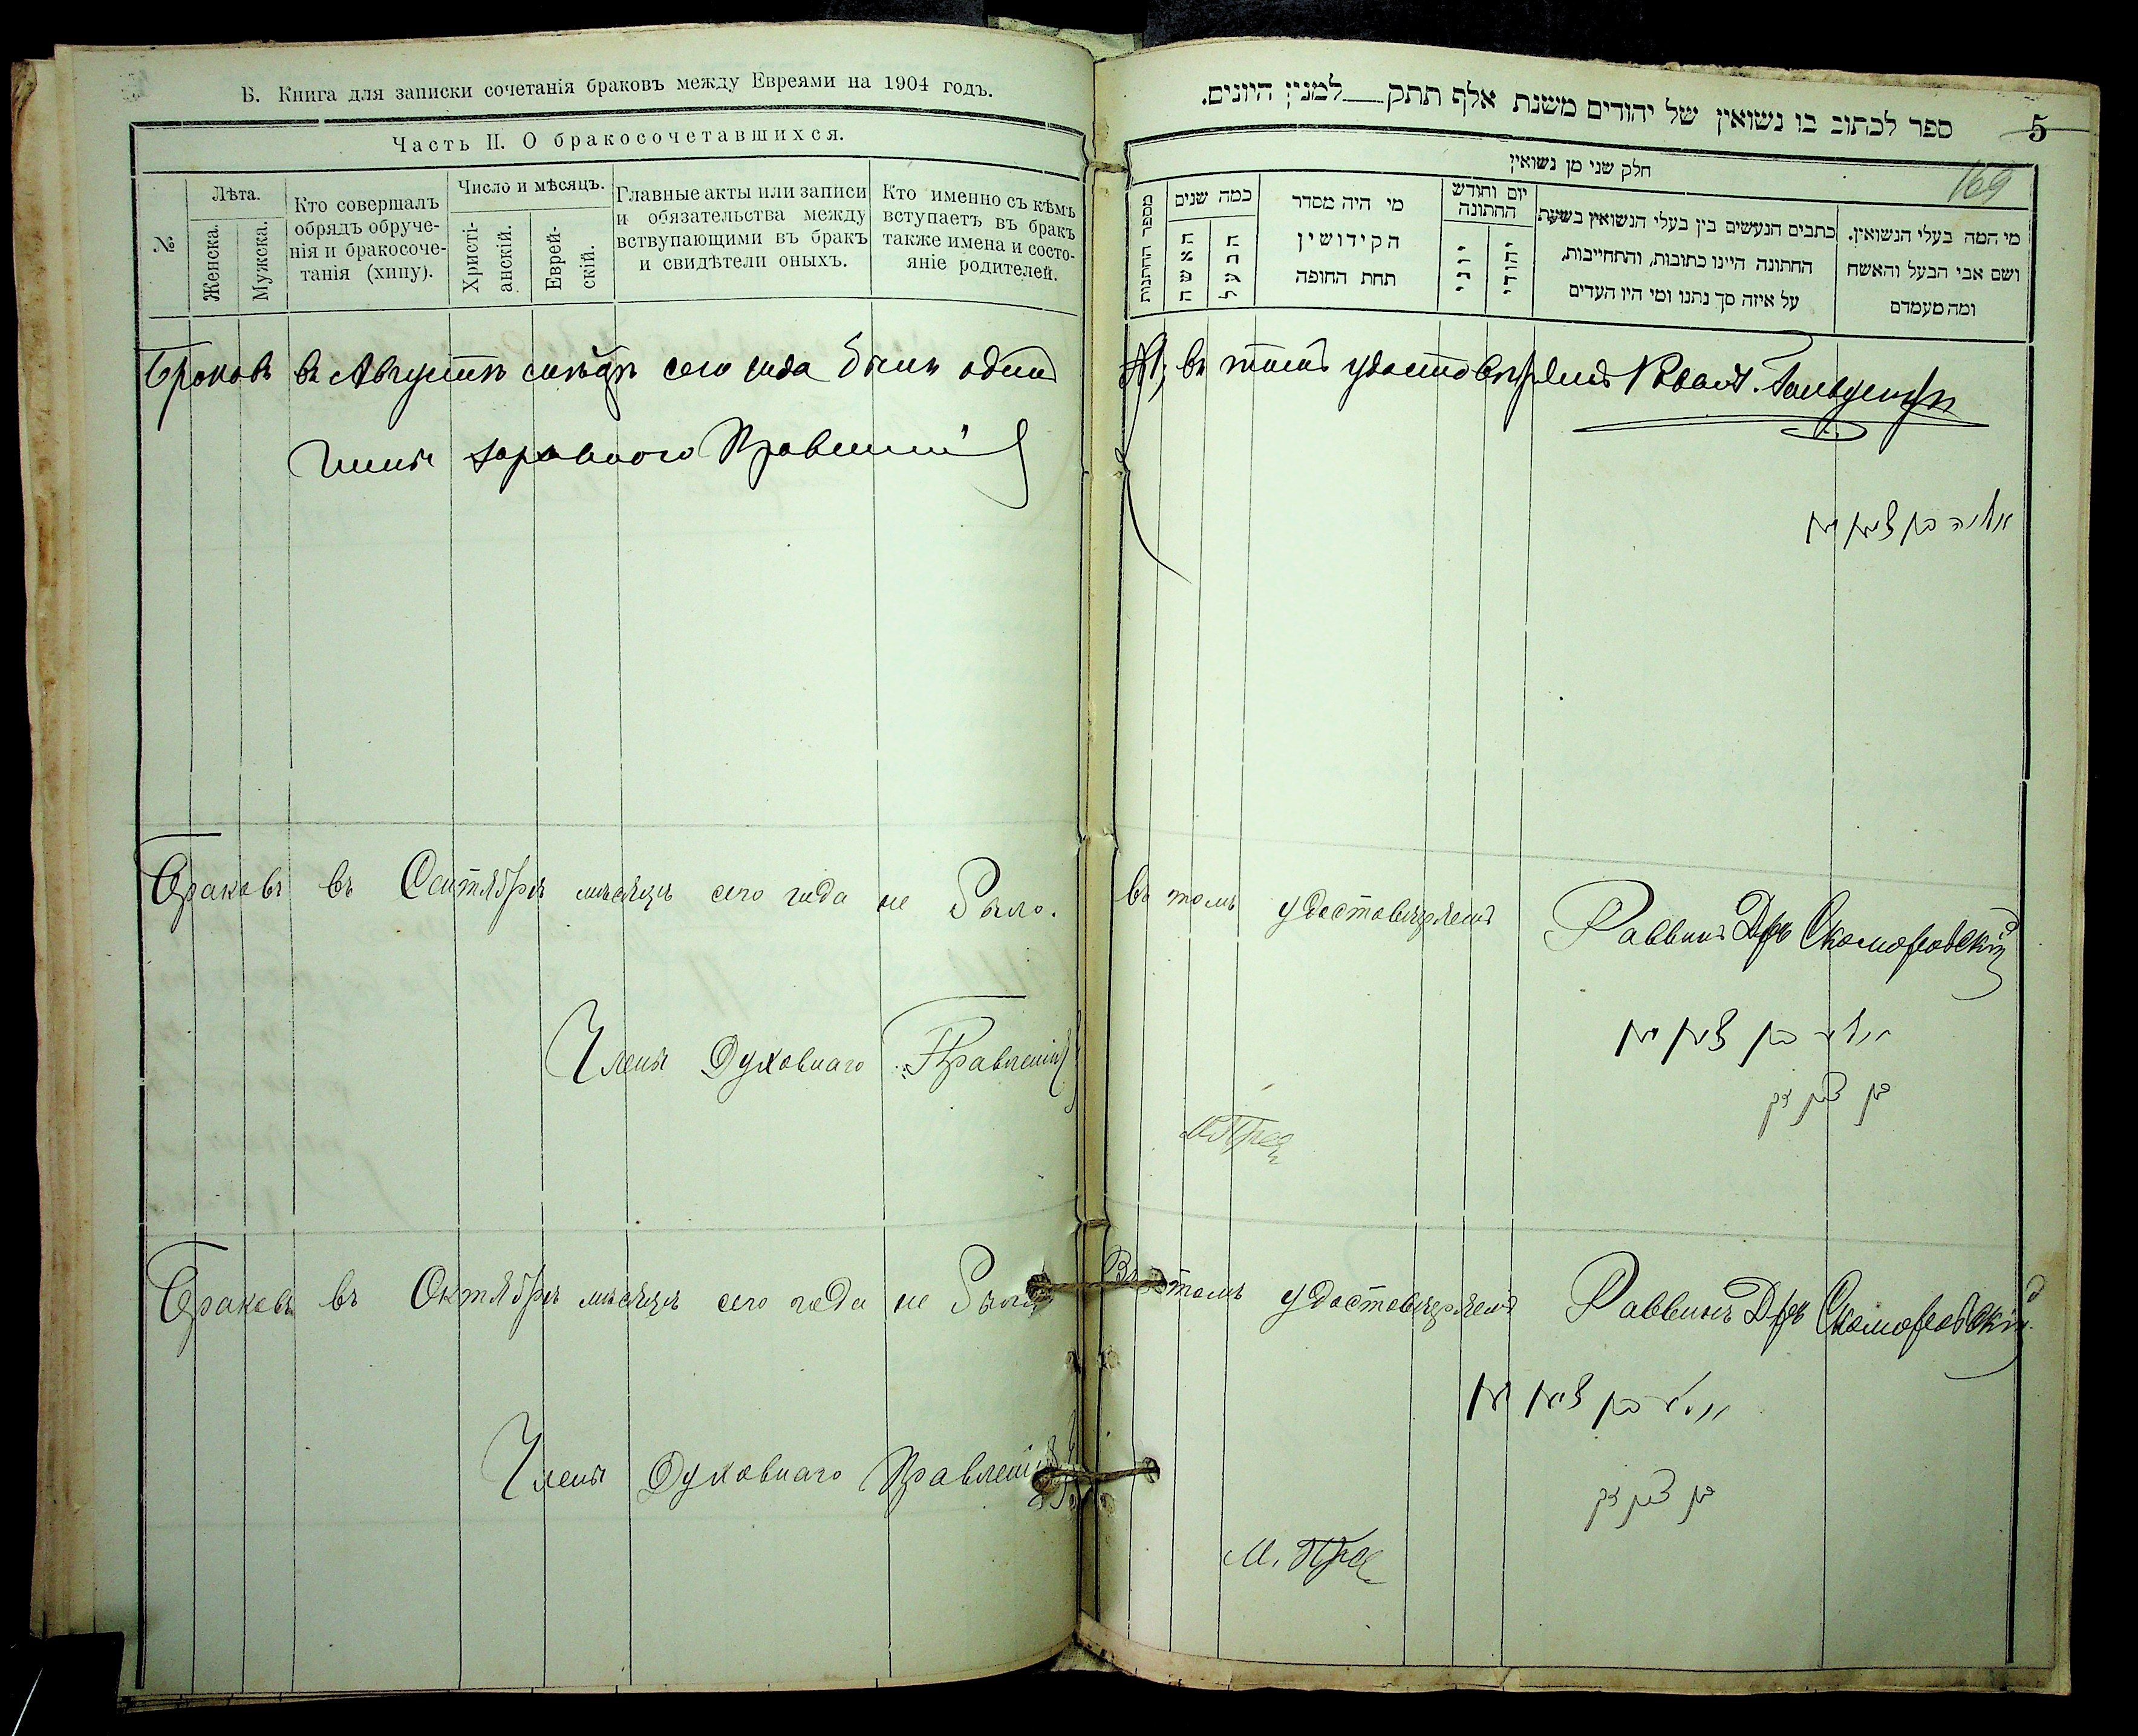 В. Книга для записки сочетанія браковъ между Евреями на 1904 годъ.
Часть II. О бракосочетавшихся.
№
Лѣта.
Женска.
Мужска.
Кто совершалъ
обрядъ обруче-
нія и бракосоче-
танія (хипу).
Число и мѣсяцъ.
Христі-
анскій.
Еврей-
скій.
Главные акты или записи
и обязательства между
вствупающими въ бракъ
и свидѣтели оныхъ.
Кто именно съ кѣмъ
вступаетъ въ бракъ
также имена и состо-
яніе родителей.
Браковъ въ Августѣ мѣсяцѣ сего года былъ одинъ
Члены Духовного Правленія
Браковъ въ Сентябрѣ мѣсяцѣ сего года не было.
Члены Духовнаго Правленія
Браковъ въ Октябрѣ мѣсяцѣ сего года не было
Члены Духовнаго Правленія
ספר לכתוב בו נשואין של יהודים משנת אלף תתק__למנין היונים.
5
169
חלק שני מן נשואין
מספר החתונות
כמה שנים
האשה
הבעל
מי היה מסדר
הקידושין
תחת החופה
יום וחודש
החתונה
יוני
יהודי
כתבים הנעשים בין בעלי הנשואין בשעת
החתונה היינו כתובות, והתחייבות,
על איזה סך נתנו ומי היו העדים
מי המה בעלי הנשואין.
ושם אבי הבעל והאשה
ומה מעמדם
въ томъ удостовѣряемъ
въ томъ удостовѣряемъ Раввинъ Д-ръ Скоморовскій
Въ томъ удостовѣряемъ Раввинъ Д-ръ Скоморовскій